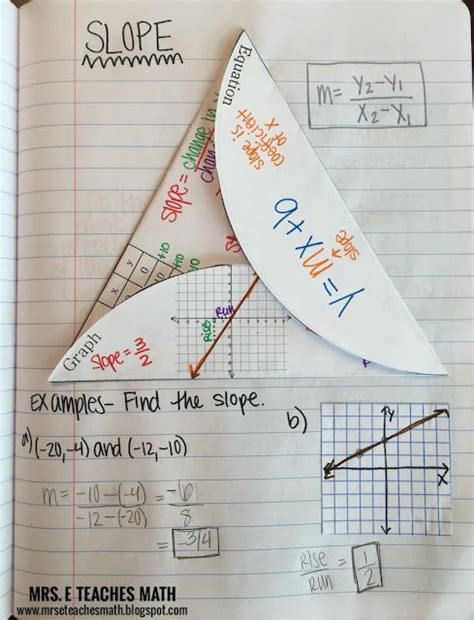 SLOPE
m= Y2-Y1
X2-X1
Equation
slope is
coefficient
of x
y=mx+b
slope
slope= change in
x
0
0
+10
+10
Graph
slope=3/2
Rise
Run
Examples- Find the slope.
a) (-20,-4) and (-12,-10)
m= -10-(-4) = -6
-12-(-20) 8
= -3/4
b)
y
x
Rise = 1
Run 2
MRS. E TEACHES MATH
www.mrseteachesmath.blogspot.com